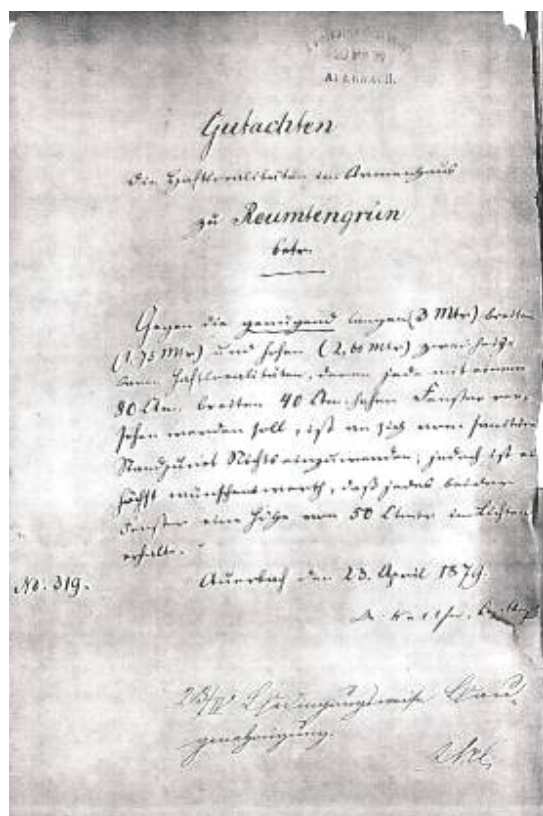 AUERBACH.
Gutachten
die Haftlocalitäten im Armenhaus
zu Reumtengrün
betr.
Gegen die genügend langen (3 Mtr) breiten
(1,75 Mtr) und hohen (2,60 Mtr) zwei heiz-
baren Haftlocalitäten, deren jede mit einem
80 Ctm. breiten 40 Ctm. hohen Fenster ver-
sehen werden soll, ist an sich vom sanitären
Standpunct Nichts einzuwenden, jedoch ist es
höchst wünschenswerth, daß jedes beider
Fenster eine Höhe von 50 Ctmtr im Lichten
erhalte.
No. 319.
Auerbach den 23. April 1879.
Bedingungsweise Bau-
genehmigung.